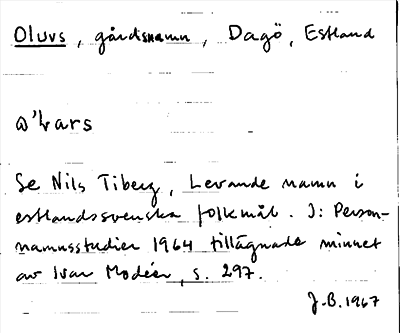 Oluvs, gårdsnamn, Dagö, Estland
Se Nils Tiberg, Levande namn i
estlandssvenska folkmål. I: Person-
namnsstudier 1964 tillägnade minnet
av Ivar Modéer, s. 297.
J.B. 1967